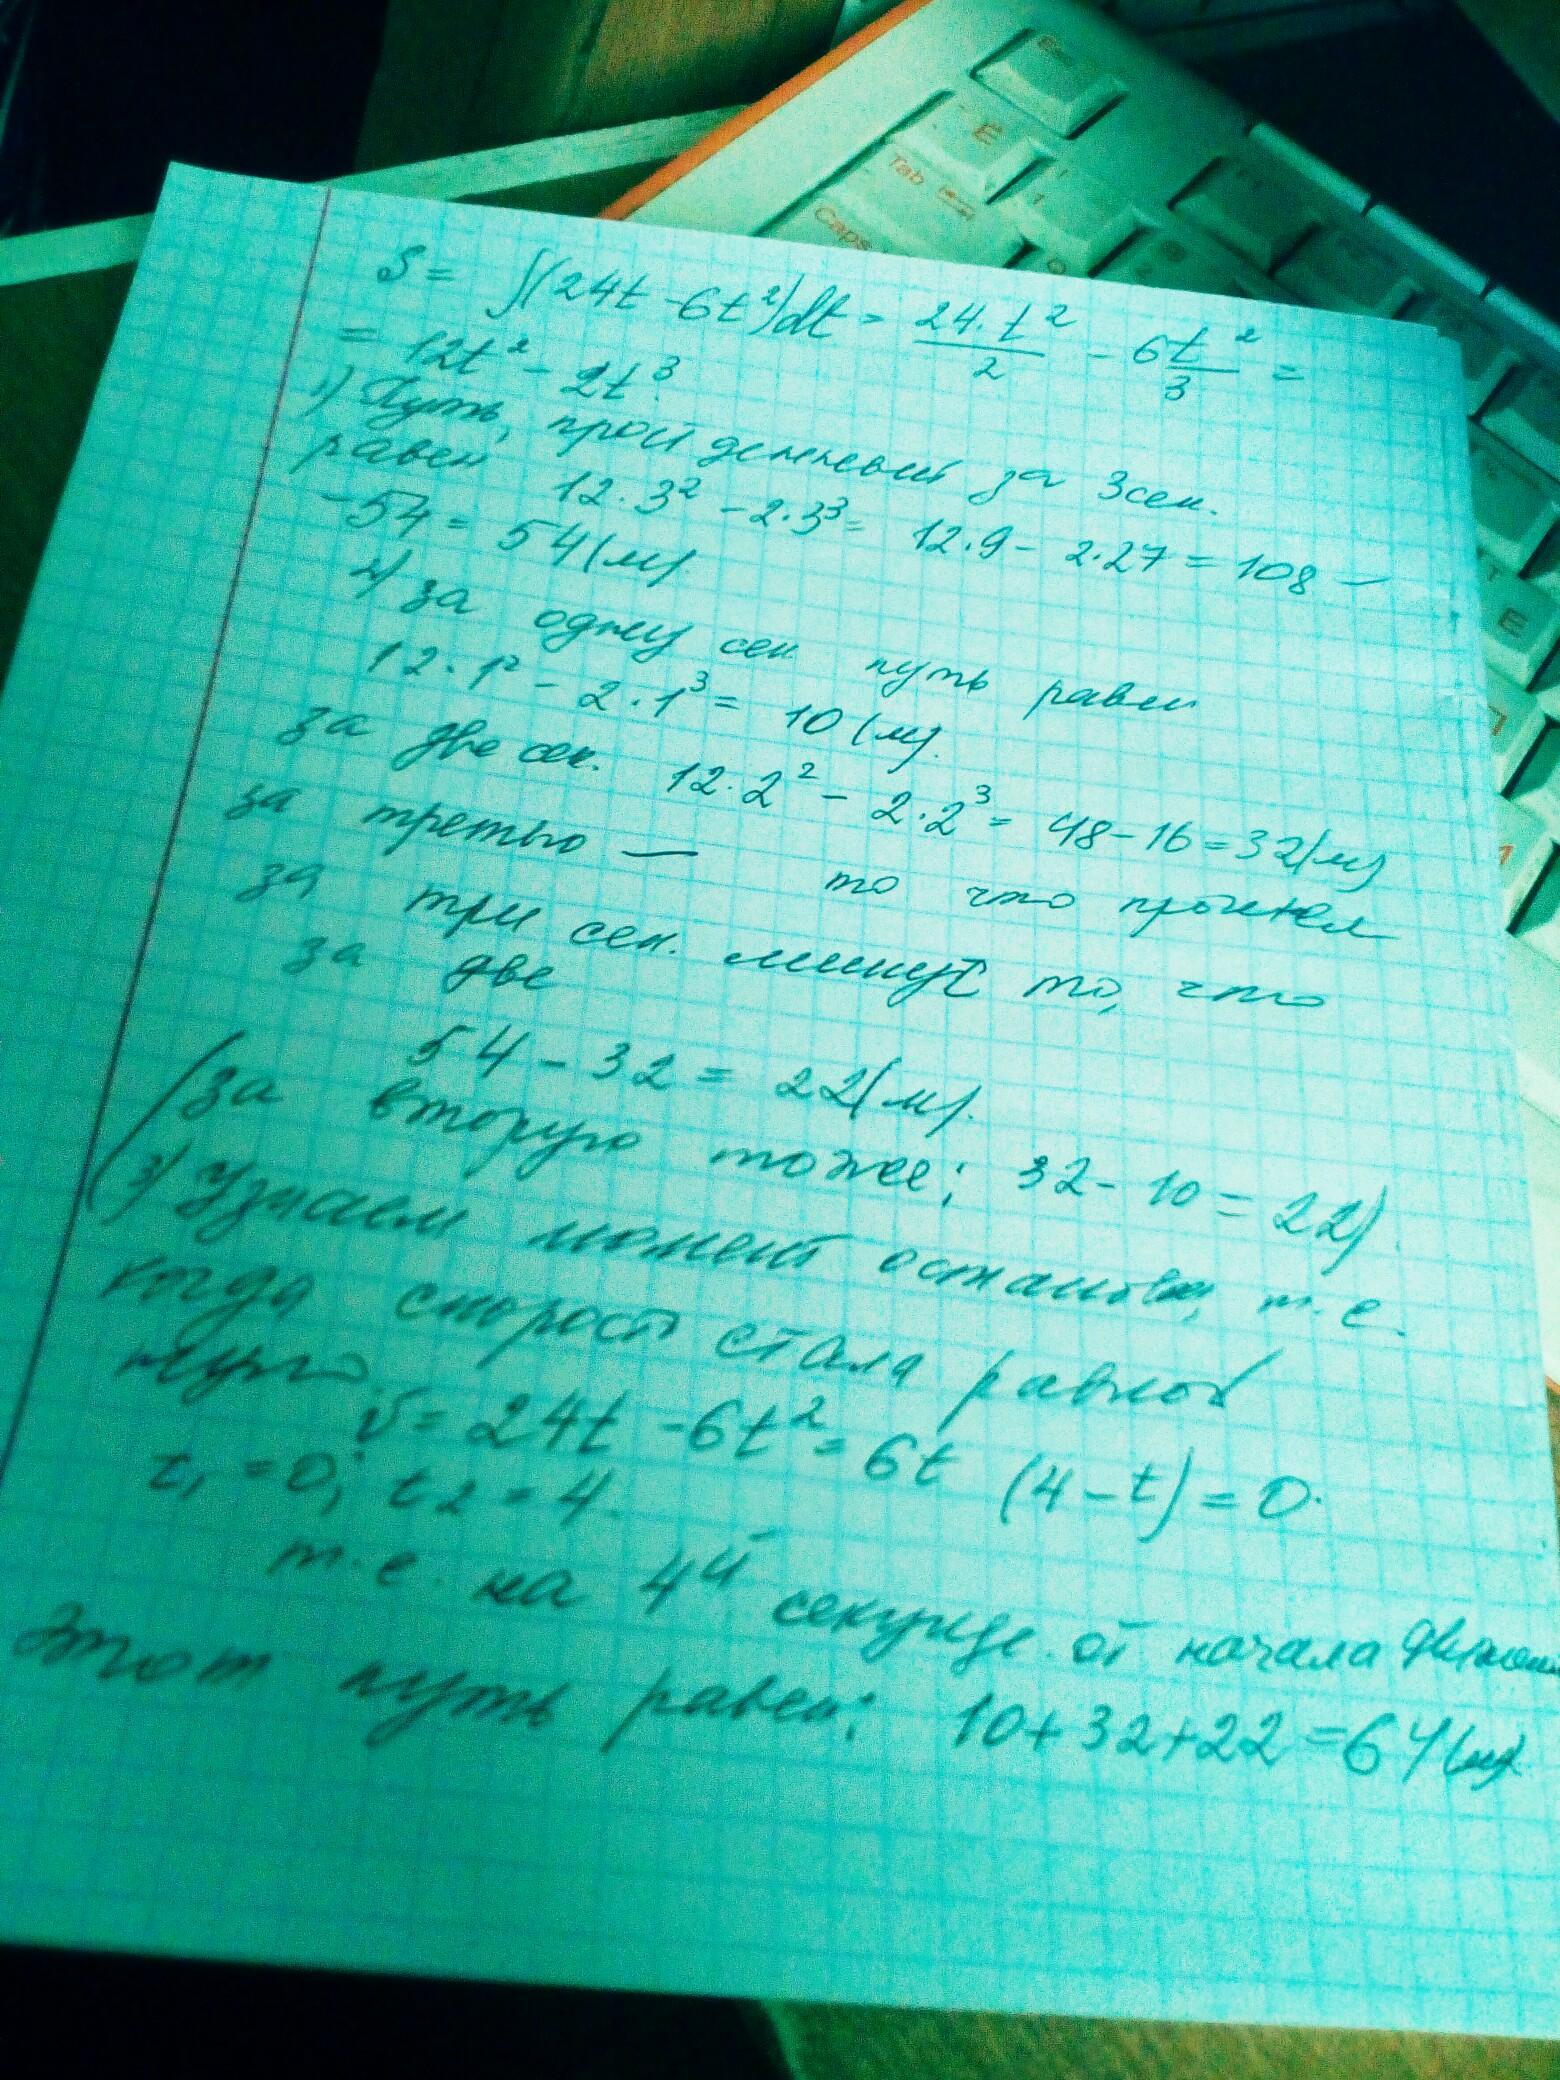 Esc
Ё
Tab
1
Caps
2
S = ∫(24t - 6t²)dt = 24·t²/2 - 6t²/3 =
= 12t² - 2t³.
1) Путь, пройденный за 3 сек.
равен 12·3² - 2·3³ = 12·9 - 2·27 = 108 -
- 54 = 54(м).
2) за одну сек путь равен
12·1² - 2·1³ = 10(м).
за две сек. 12·2² - 2·2³ = 48 - 16 = 32(м)
за третью — то что прошел
за три сек. минус то, что
за две
54 - 32 = 22(м).
(за вторую тоже; 32 - 10 = 22)
3) Узнаем момент останова, т.е.
когда скорость стала равной
нулю.
v = 24t - 6t² = 6t (4 - t) = 0.
t₁ = 0; t₂ = 4.
т.е. на 4й секунде от начала
Этот путь равен: 10 + 32 + 22 = 64(м).